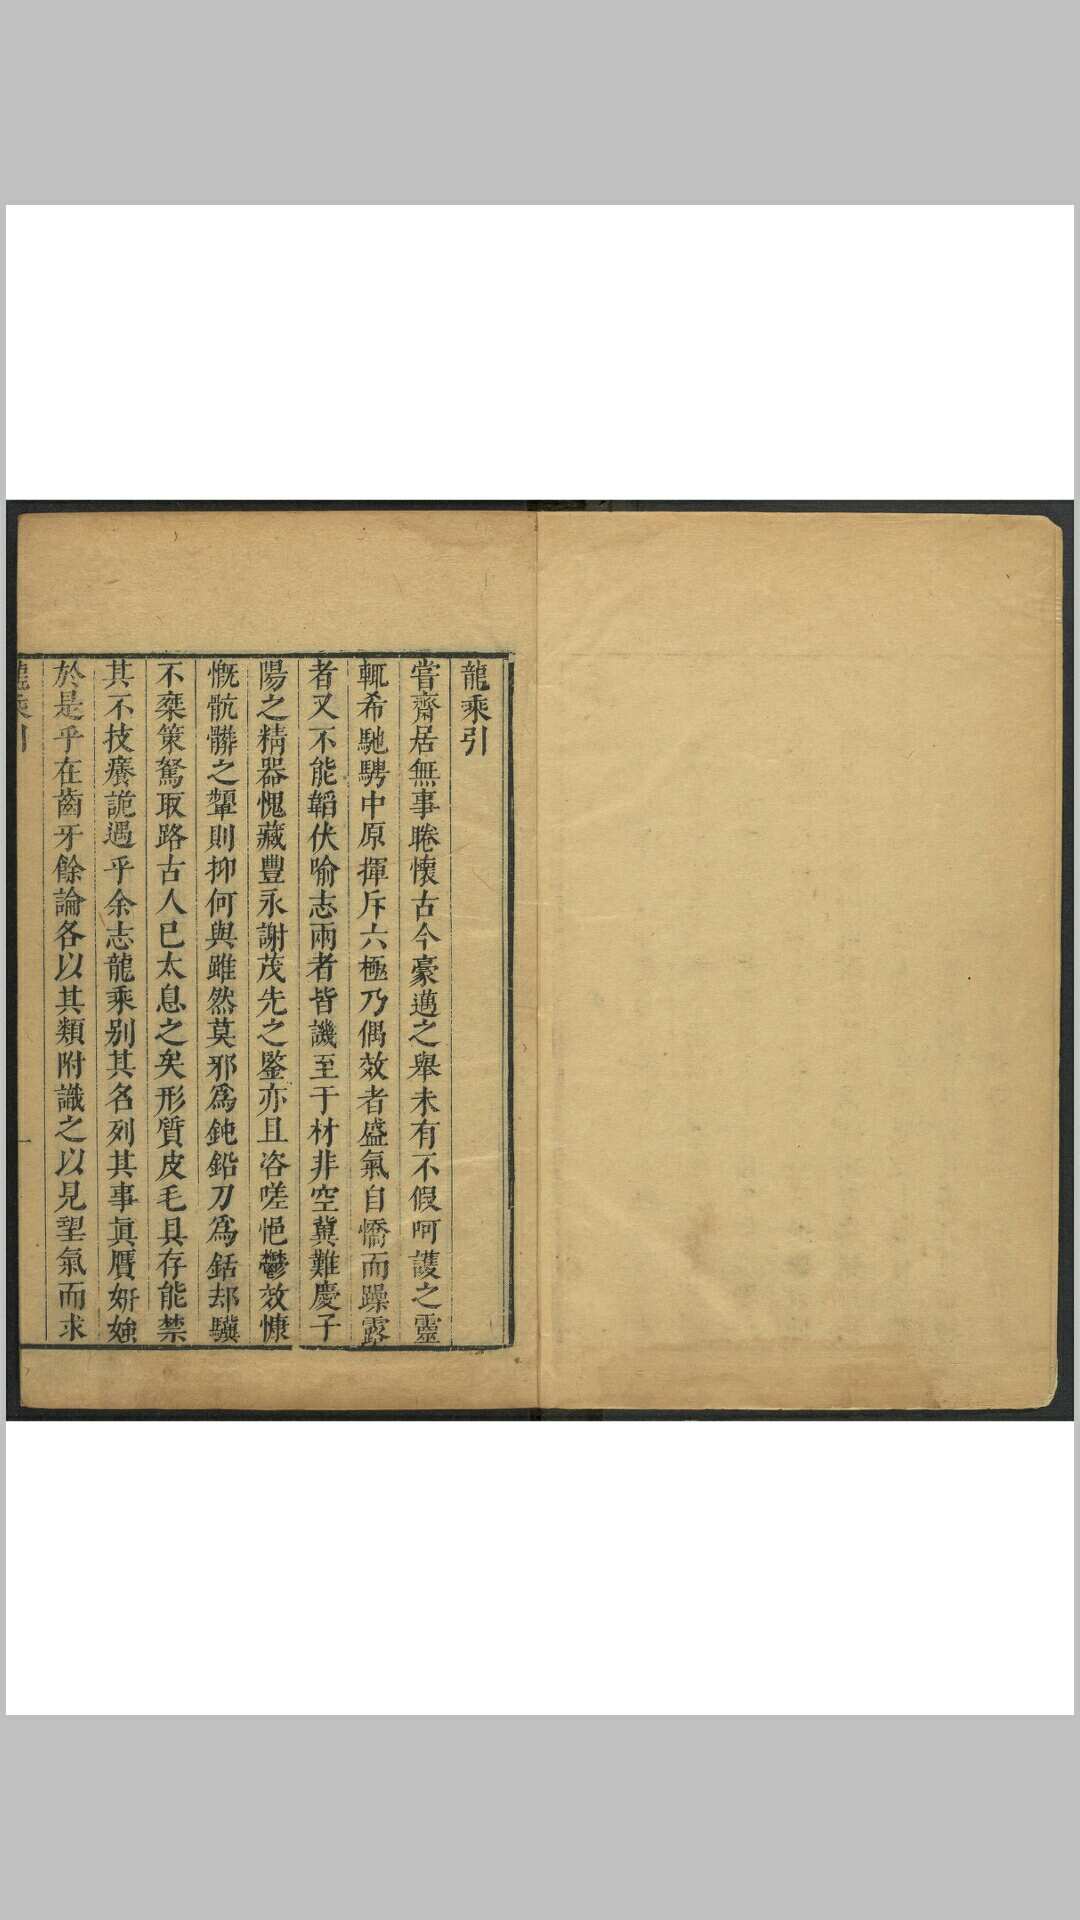 龍乘引
嘗齋居無事睠懷古今豪邁之舉未有不假呵護之靈
輒希馳騁中原揮斥六極乃偶效者盛氣自憍而躁露
者又不能韜伏喻志兩者皆譏至于材非空冀難慶子
陽之精器愧藏豐永謝茂先之鑒亦且咨嗟悒鬱效慷
慨骯髒之顰則抑何與雖然莫邪為鈍鉛刀為銛却驥
不桒策駑取路古人已太息之矣形質皮毛具存能禁
其不技癢詭遇乎余志龍乘别其名列其事眞贋妍媸
於是乎在齒牙餘論各以其類附識之以見朢氣而求
龍乘引
一